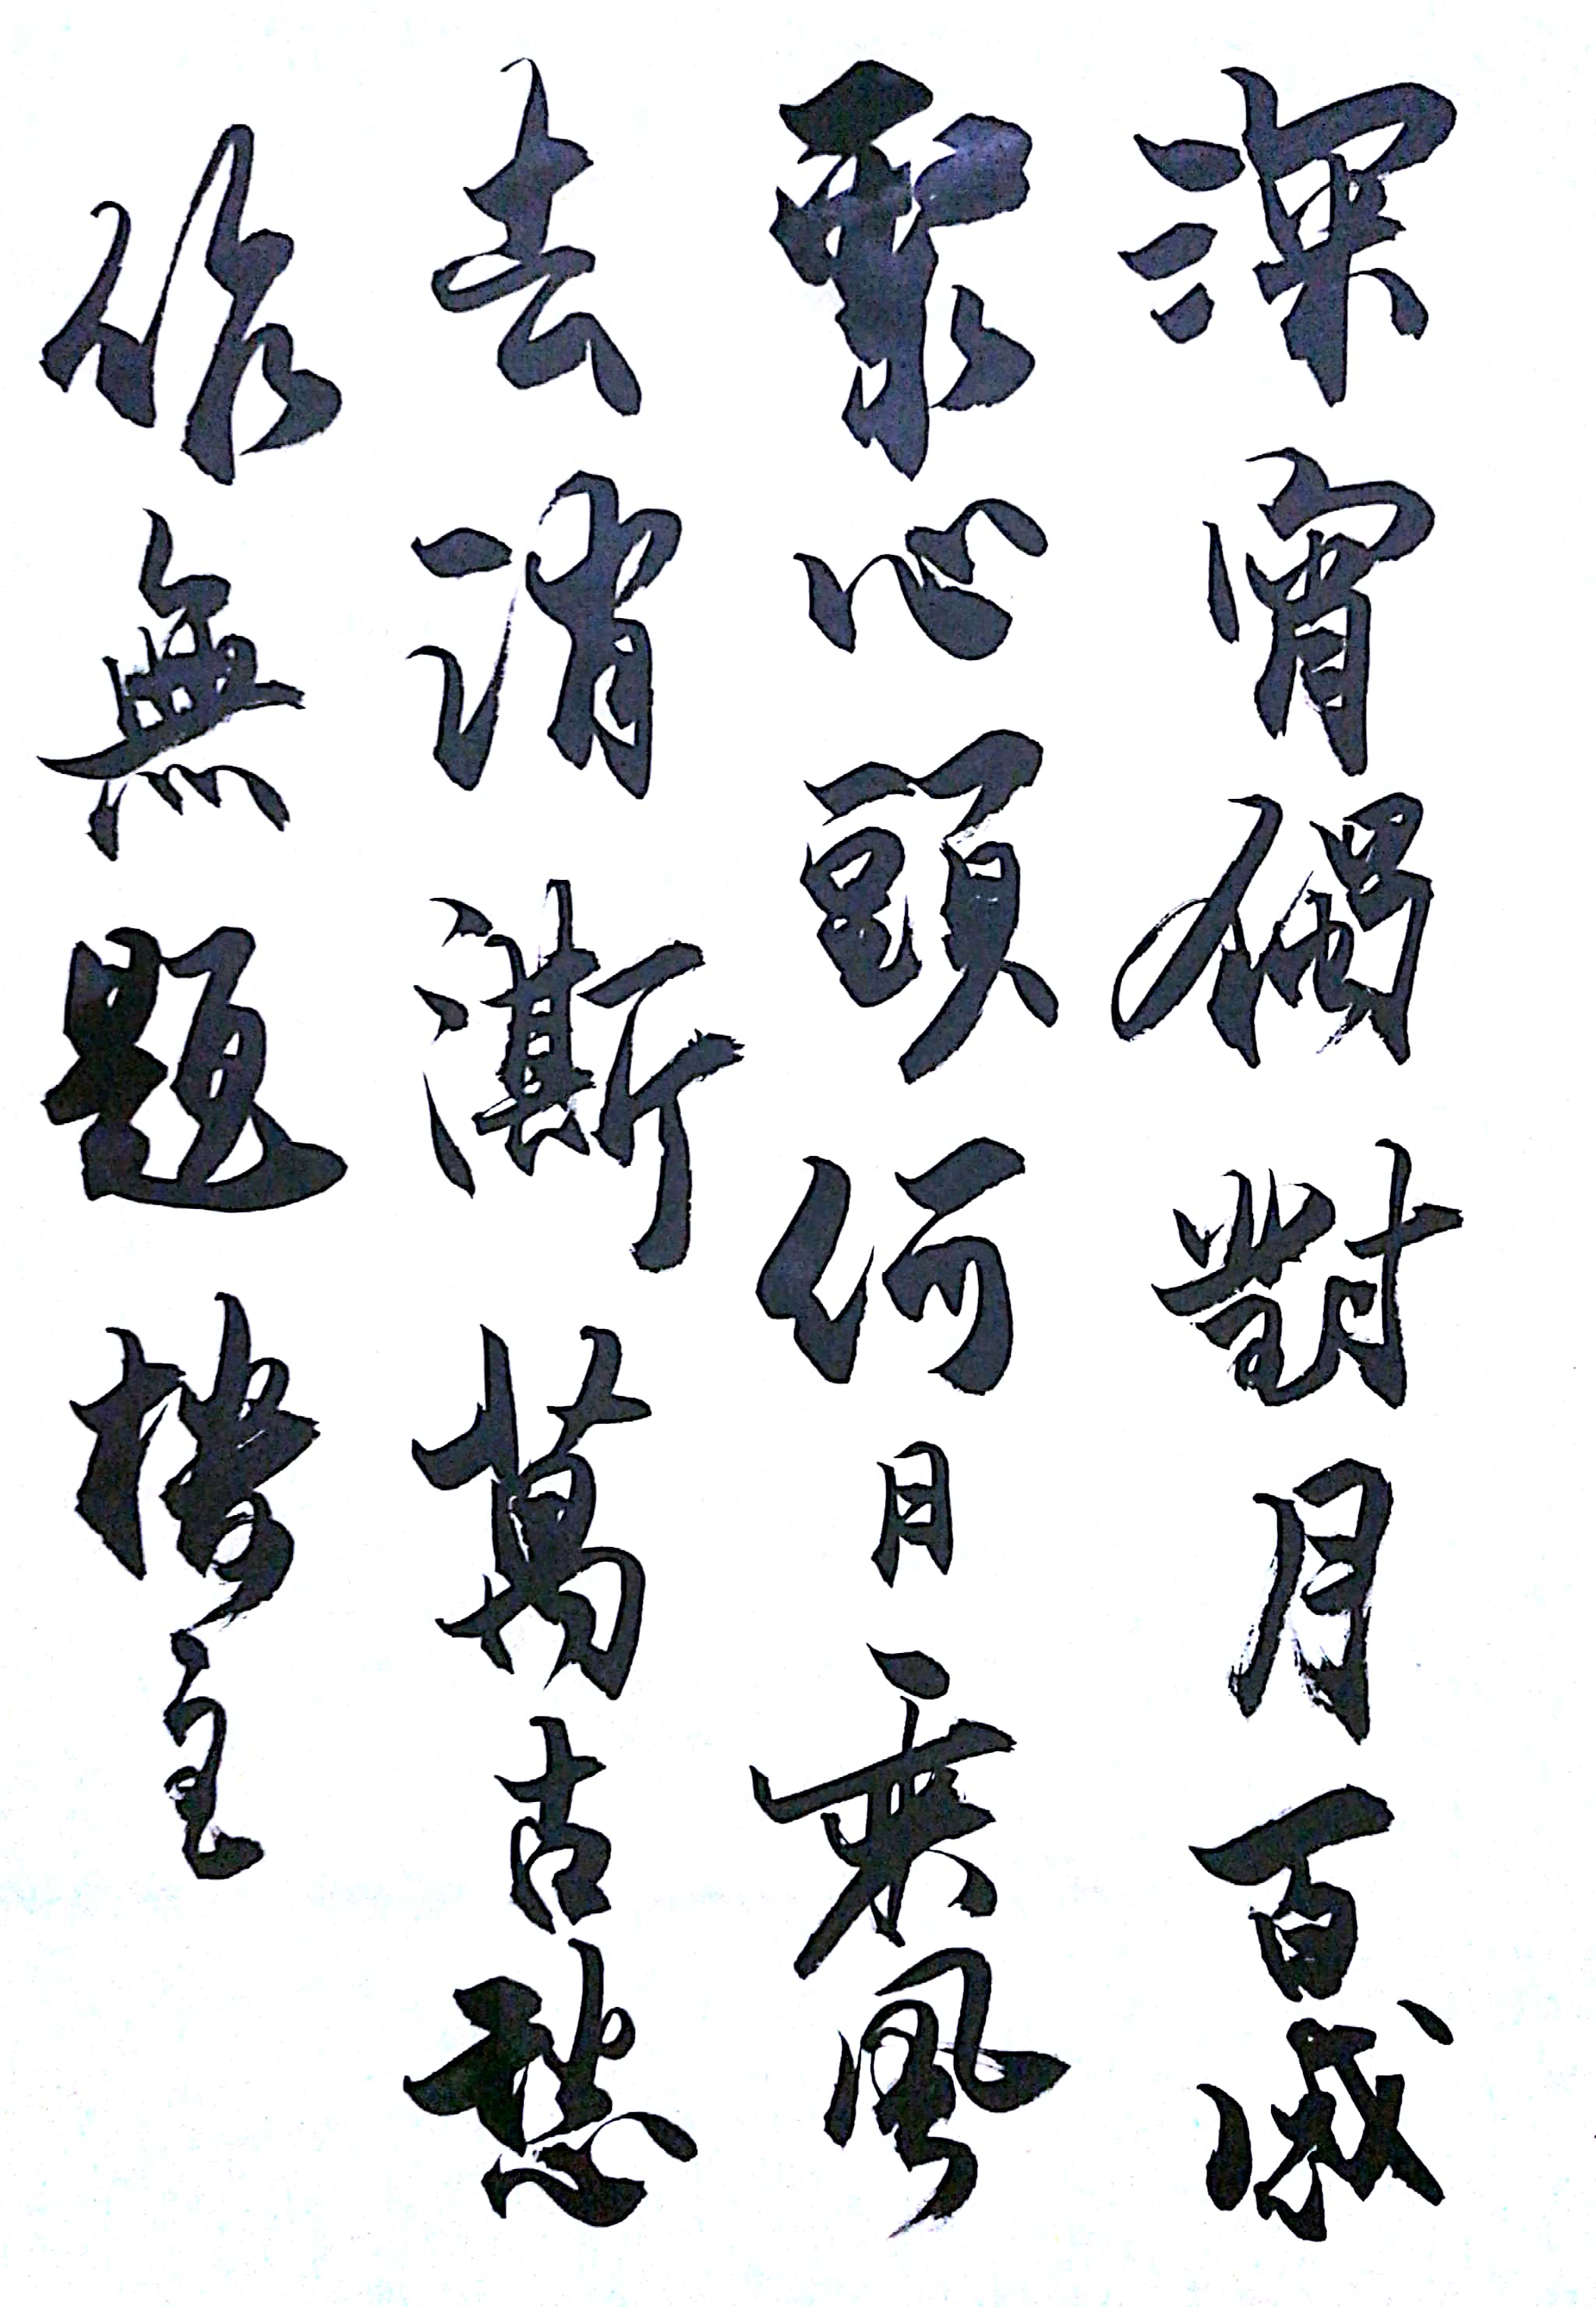 深宵獨對月百感
聚心頭何日乘風
去消漸萬古愁
於無題樓主